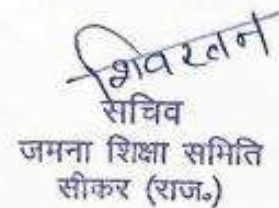 शिवरतन
सचिव
जमना शिक्षा समिति
सीकर (राज॰)